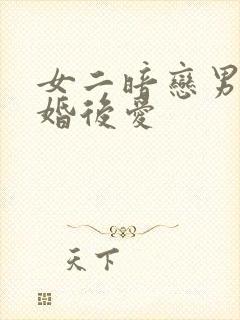 女二暗戀男
婚後愛
天下